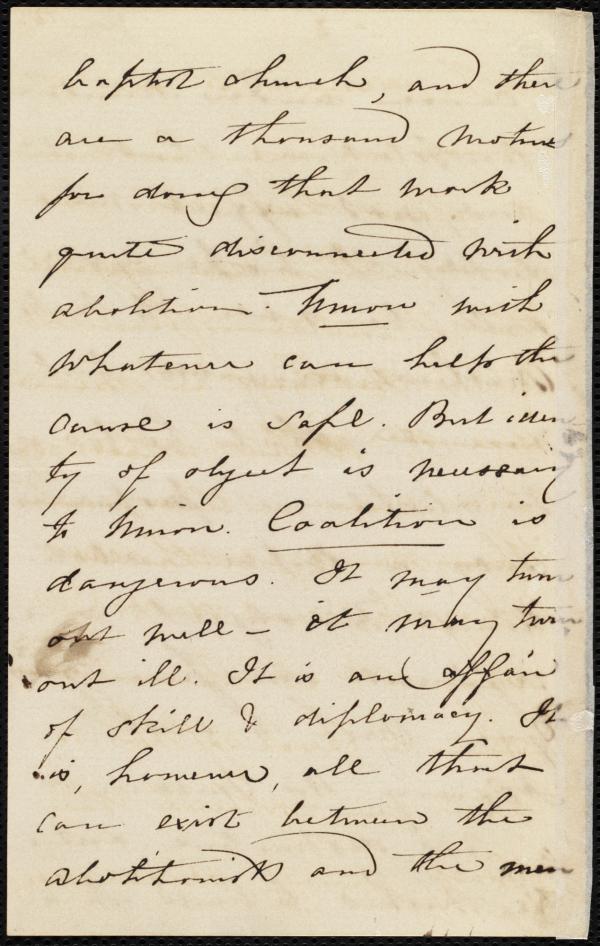 baptist church, and there
are a thousand motives
for doing that work
quite disconnected with
abolition. Union with
whatever can help the
cause is safe. But iden
ty of object is necessary
to Union. Coalition is
dangerous. It may turn
out well - it may turn
out ill. It is an affair
of skill & diplomacy. It
is, however, all that
can exist between the
abolitionists and the men